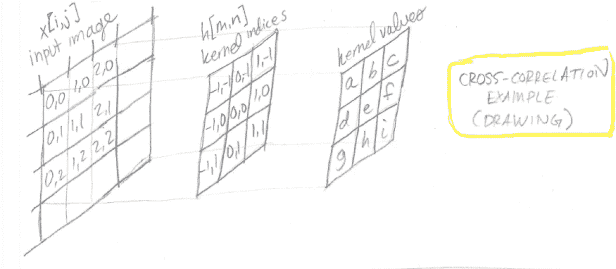 x[i,j]
input image
0,0 1,0 2,0
0,1 1,1 2,1
0,2 1,2 2,2
h[m,n]
kernel indices
-1,-1 0,-1 1,-1
-1,0 0,0 1,0
-1,1 0,1 1,1
kernel values
a b c
d e f
g h i
CROSS-CORRELATION
EXAMPLE
(DRAWING)